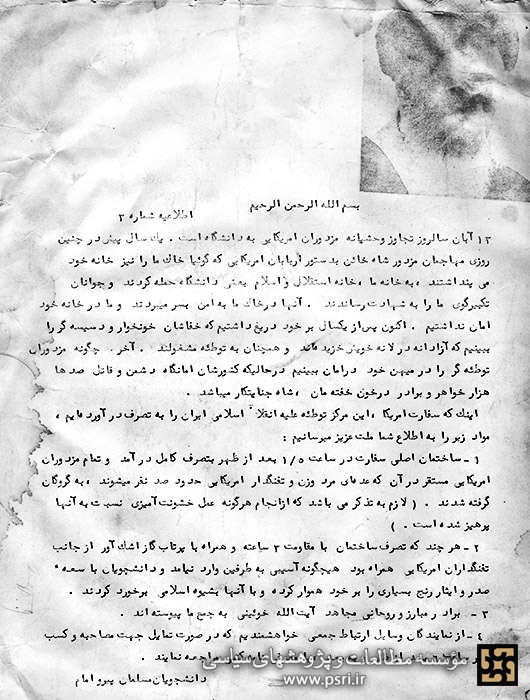 بسم الله الرحمن الرحیم
اطلاعیه شماره ۲
۱۳ آبان سالروز تجاوز وحشیانه مزدوران امریکایی به دانشگاه است . یک سال پیش در چنین
روزی مهاجمان مزدور شاه خائن بدستور اربابان امریکایی که گوئیا خاک ما را نیز خانه خود
می پنداشتند ، به خانه ما ، خانه استقلال و اسلام یعنی دانشگاه حمله کردند و جوانان
تکبیرگوی ما را به شهادت رساندند . آنها در خاک ما به امن بسر میبردند و ما در خانه خود
امان نداشتیم . اکنون پس از یکسال بر خود دریغ داشتیم که خفاشان خونخوار و دسیسه گر را
ببینیم که آزادانه در لانه خویش خزیده اند و همچنان به توطئه مشغولند . آخر چگونه مزدوران
توطئه گر را در میهن خود در امان ببینیم در حالیکه کشورشان امانگاه دشمن و قاتل صدها
هزار خواهر و برادر در خون خفته مان ، شاه جنایتکار میباشد .
اینک که سفارت امریکا ، این مرکز توطئه علیه انقلاب اسلامی ایران را به تصرف در آورده ایم ،
مواد زیر را به اطلاع شما ملت عزیز میرسانیم :
۱ - ساختمان اصلی سفارت در ساعت ۱/۵ بعد از ظهر بتصرف کامل در آمد و تمام مزدوران
امریکایی مستقر در آن که عده ای مرد و زن و تفنگدار امریکایی حدود صد نفر میشوند ، به گروگان
گرفته شدند . ( لازم به تذکر می باشد که از انجام هرگونه عمل خشونت آمیزی نسبت به آنها
پرهیز شده است . )
۲ - هر چند که تصرف ساختمان با مقاومت ۳ ساعته و همراه با پرتاب گاز اشک آور از جانب
تفنگداران امریکایی همراه بود هیچگونه آسیبی به طرفین وارد نیامد و دانشجویان با سعه
صدر و ایثار رنج بسیاری را بر خود هموار کرده و با آنها بشیوه اسلامی برخورد کردند .
۳ - برادر مبارز و روحانی مجاهد آیت الله خوئینی به جمع ما پیوسته اند .
۴ - از نمایندگان وسایل ارتباط جمعی خواهشمندیم که در صورت تمایل جهت مصاحبه و کسب
مراجعه نمایند .
دانشجویان مسلمان پیرو امام
موسسه مطالعات و پژوهشهای سیاسی
www.psri.ir